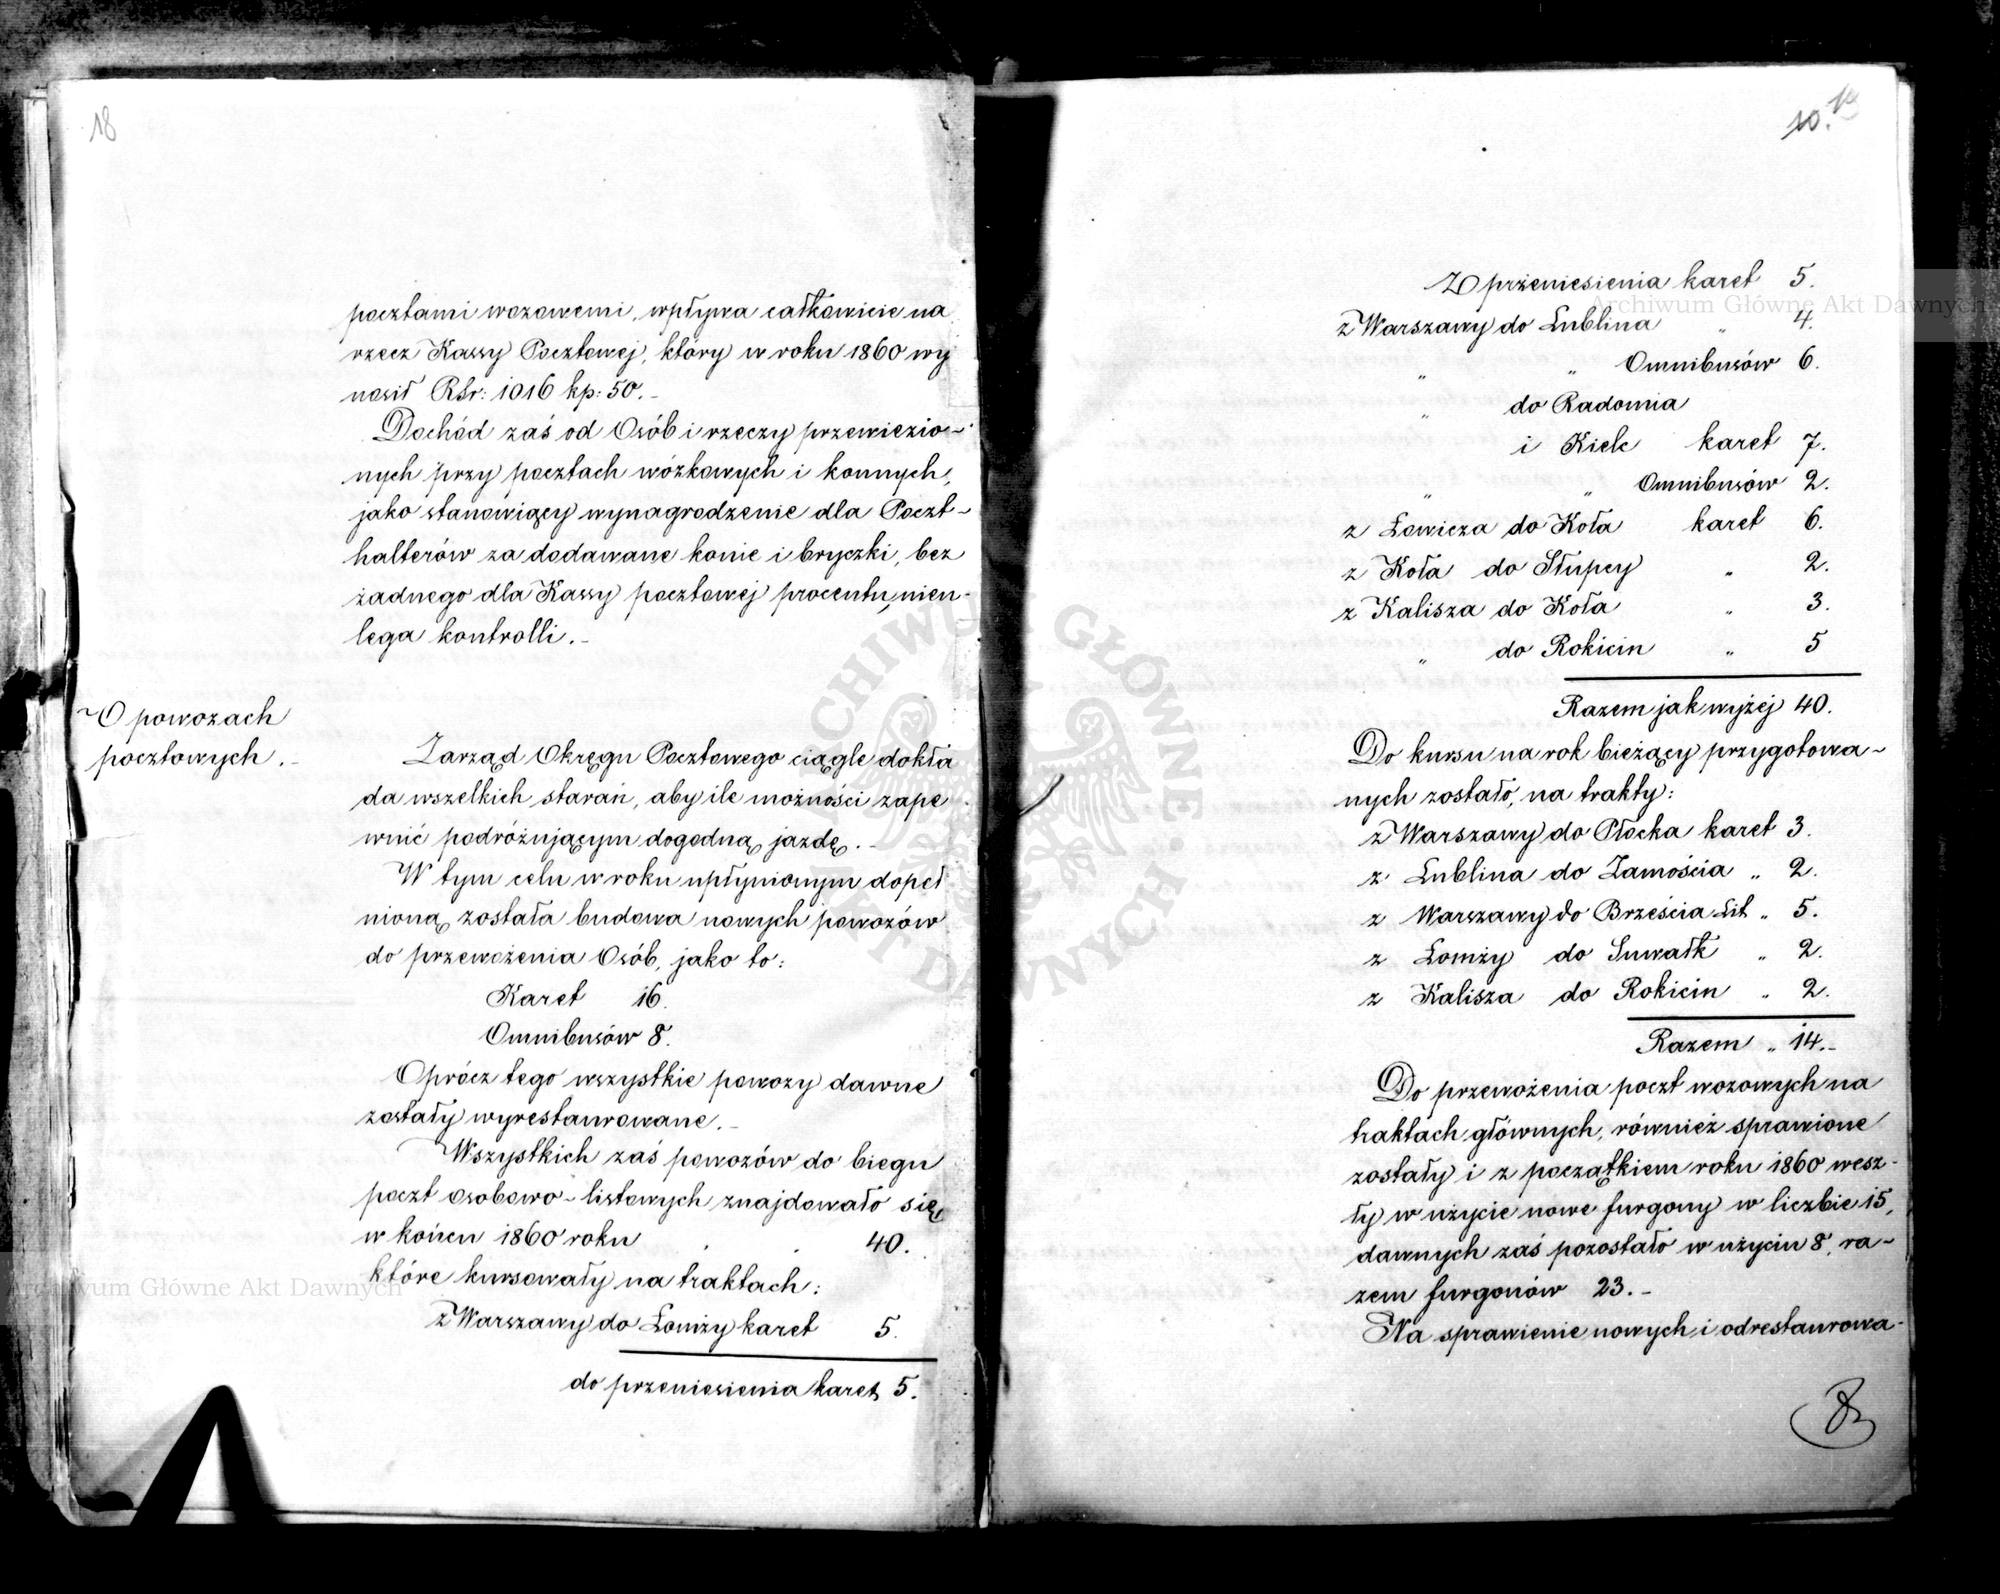 18
pocztami wozowemi, wpływa całkowicie na
rzecz Kassy Pocztowej, który w roku 1860 wy
nosił RSr: 1016 kp: 50.-
Dochód zaś od Osób i rzeczy przewiezio-
nych przy pocztach wózkowych i konnych,
jako stanowiący wynagrodzenie dla Poczt-
halterów za dodawane konie i bryczki, bez
żadnego dla Kassy pocztowej procentu, nieu-
lega kontrolli.-
O powozach
pocztowych.-
Zarząd Okręgu Pocztowego ciągle dokła
da wszelkich starań, aby ile możności zape
wnić podróżującym dogodną jazdę.-
W tym celu w roku upłynionym dopeł
nioną została budowa nowych powozów
do przewożenia Osób, jako to:
Karet 16.
Omnibusów 8.
Oprócz tego wszystkie powozy dawne
zostały wyrestaurowane.-
Wszystkich zaś powozów do biegu
poczt osobowo-listowych znajdowało się
w końcu 1860 roku 40.
które kursowały na traktach:
z Warszawy do Łomży karet 5.
do przeniesienia karet 5.
10.
Z przeniesienia karet 5.
z Warszawy do Lublina " 4.
" " Omnibusów 6.
" do Radomia
i Kielc karet 7.
" " Omnibusów 2.
z Łowicza do Koła karet 6.
z Koła do Słupcy " 2.
z Kalisza do Koła " 3.
" do Rokicin " 5
Razem jak wyżej 40.
Do kursu na rok bieżący przygotowa-
nych zostało, na trakty:
z Warszawy do Płocka karet 3.
z Lublina do Zamościa " 2.
z Warszawy do Brześcia Lit " 5.
z Łomży do Suwałk " 2.
z Kalisza do Rokicin " 2.
Razem " 14.-
Do przewożenia poczt wozowych na
traktach głównych, również sprawione
zostały i z początkiem roku 1860 wesz-
ły w użycie nowe furgony w liczbie 15,
dawnych zaś pozostało w użyciu 8, ra-
zem furgonów 23.-
Na sprawienie nowych i odrestaurowa-
Archiwum Główne Akt Dawnych
Archiwum Główne Akt Dawnych
ARCHIWUM GŁÓWNE AKT DAWNYCH